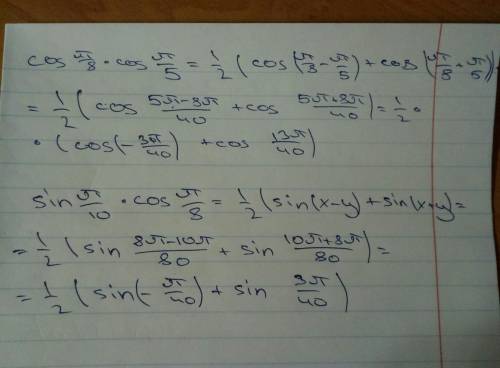 cos π/8 · cos π/5 = 1/2 (cos(π/8 - π/5) + cos(π/8 + π/5)) =
= 1/2 (cos (5π-8π)/40 + cos (5π+8π)/40) = 1/2 ·
· (cos(-3π/40) + cos 13π/40)
sin π/10 · cos π/8 = 1/2 (sin(x-y) + sin(x+y)) =
= 1/2 (sin (8π-10π)/80 + sin (10π+8π)/80) =
= 1/2 (sin(-π/40) + sin 3π/40)